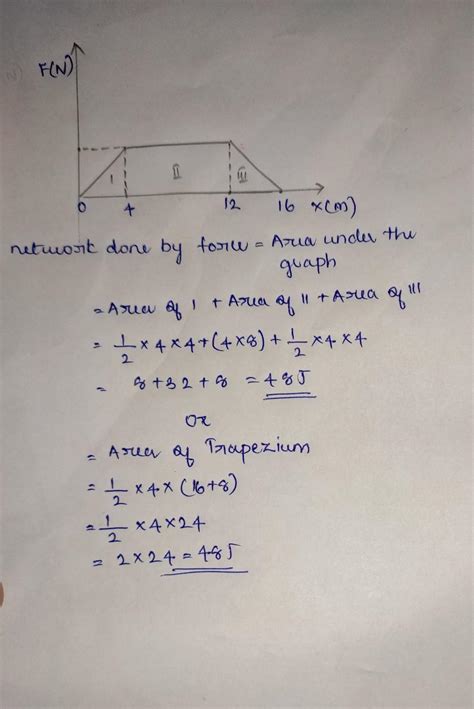 F(N)
I
II
III
0 4 12 16 x(m)
network done by force = Area under the
graph
= Area of I + Area of II + Area of III
= 1/2 × 4 × 4 + (4 × 8) + 1/2 × 4 × 4
= 8 + 32 + 8 = 48J
Or
= Area of Trapezium
= 1/2 × 4 × (16+8)
= 1/2 × 4 × 24
= 2 × 24 = 48J